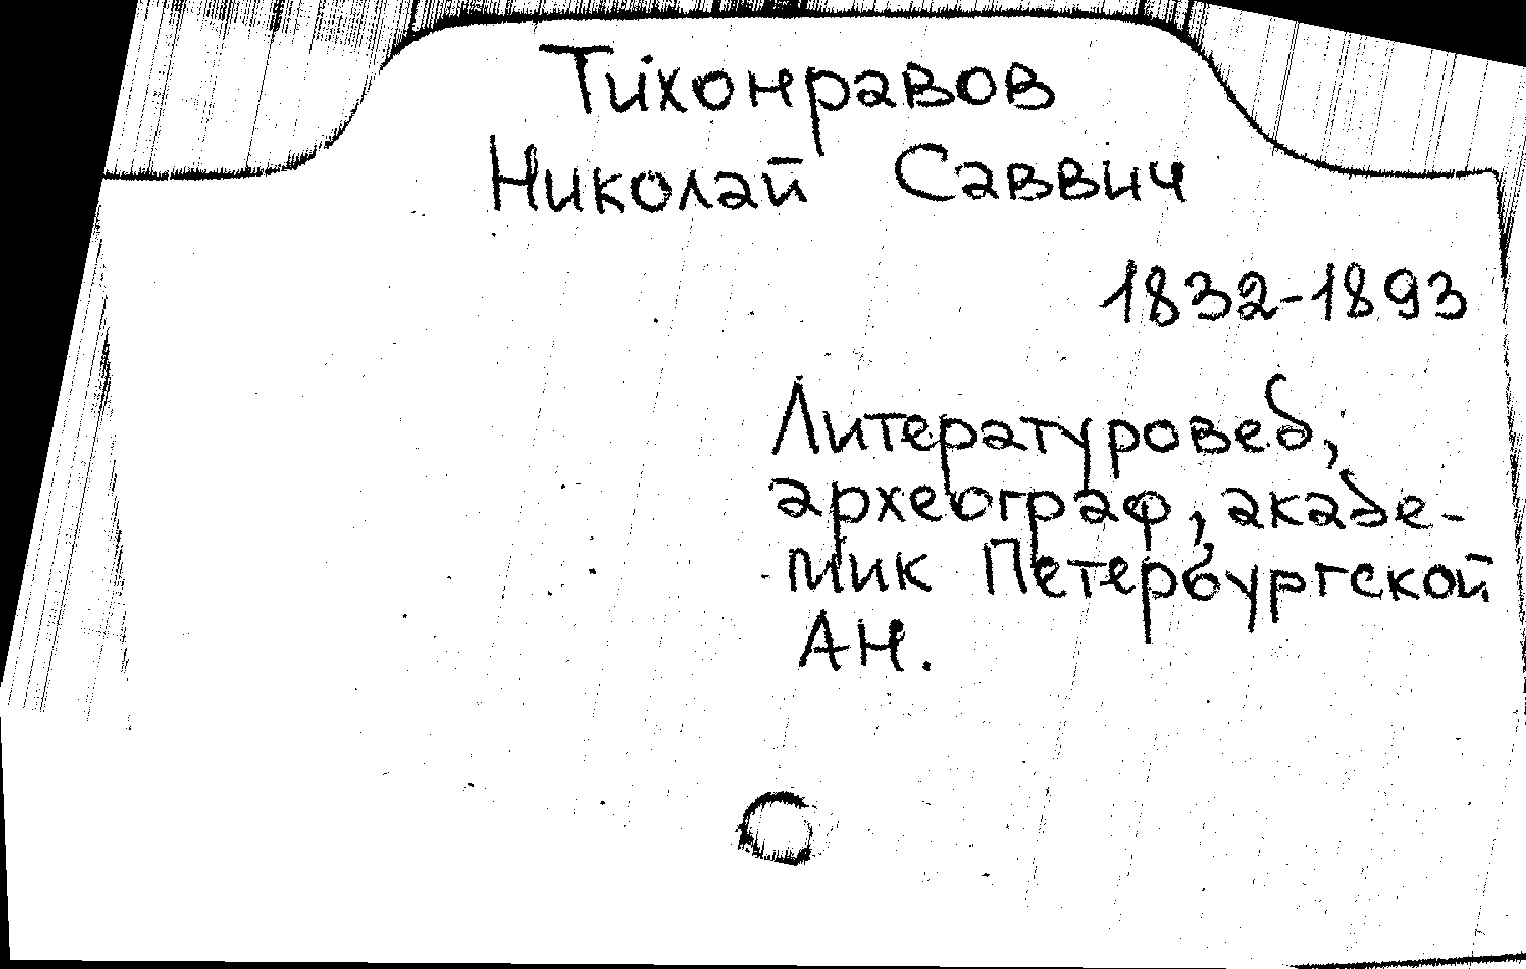 Тихонравов
Николай Саввич
1832-1893
Литературовед,
археограф, акаде-
мик Петербургской
АН.